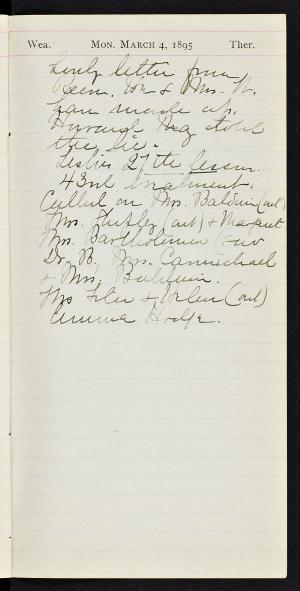 Wea. MON. MARCH 4, 1895 Ther.
Lovely letter from
& Mrs. W.
made up.
Hurrah told
the lie.
Leslie's 27th lesson.
43rd treatment.
Called on Mrs. Baldwin (out)
Mrs. (out) & Margaret
Mrs. Bartholomew
Dr. B. Mrs. Carmichael
& Mrs. Baldwin.
& Helen (out)
Emma Hodge.